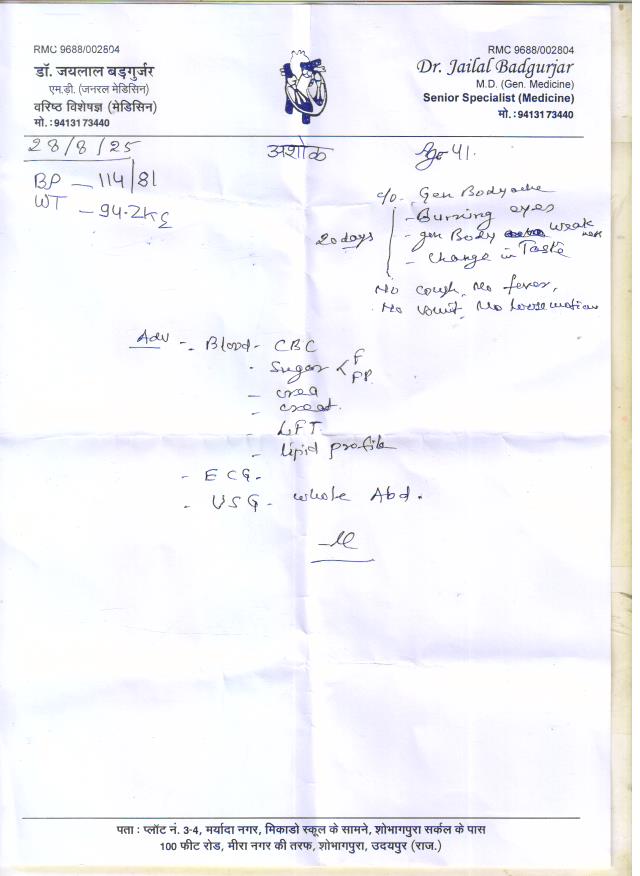 RMC 9688/002804
डॉ. जयलाल बड़गुर्जर
एम.डी. (जनरल मेडिसिन)
वरिष्ठ विशेषज्ञ (मेडिसिन)
मो. : 94131 73440
RMC 9688/002804
Dr. Jailal Badgurjar
M.D. (Gen. Medicine)
Senior Specialist (Medicine)
मो. : 94131 73440
28/8/25
अशोक
Age 41.
BP - 114/81
WT - 94.2KG
c/o - Gen Bodyache
- Burning eyes
20 days - gen Body weakness
- change in Taste
No cough, No fever,
No vomit, No loose motion
Adv - Blood - CBC
- Sugar < F
PP.
- urea
- creat.
- LFT
- lipid profile
- ECG -
- USG - whole Abd.
पता : प्लॉट नं. 3-4, मर्यादा नगर, मिकाडो स्कूल के सामने, शोभागपुरा सर्कल के पास
100 फीट रोड, मीरा नगर की तरफ, शोभागपुरा, उदयपुर (राज.)